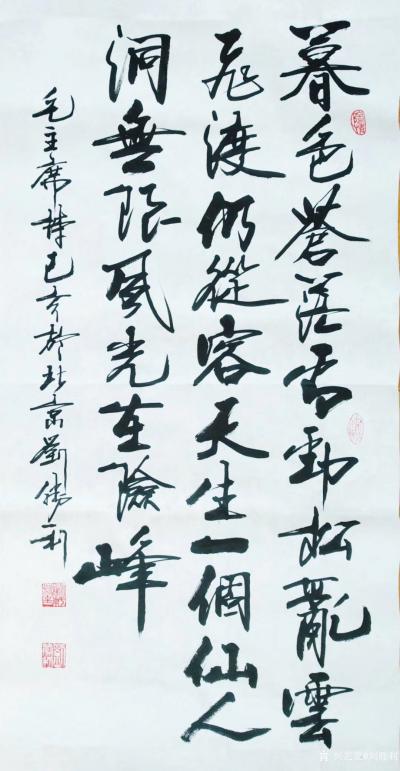 暮色蒼茫看勁松亂雲
飛渡仍從容天生一個仙人
洞無限風光在險峰
毛主席詩己亥於北京劉勝利